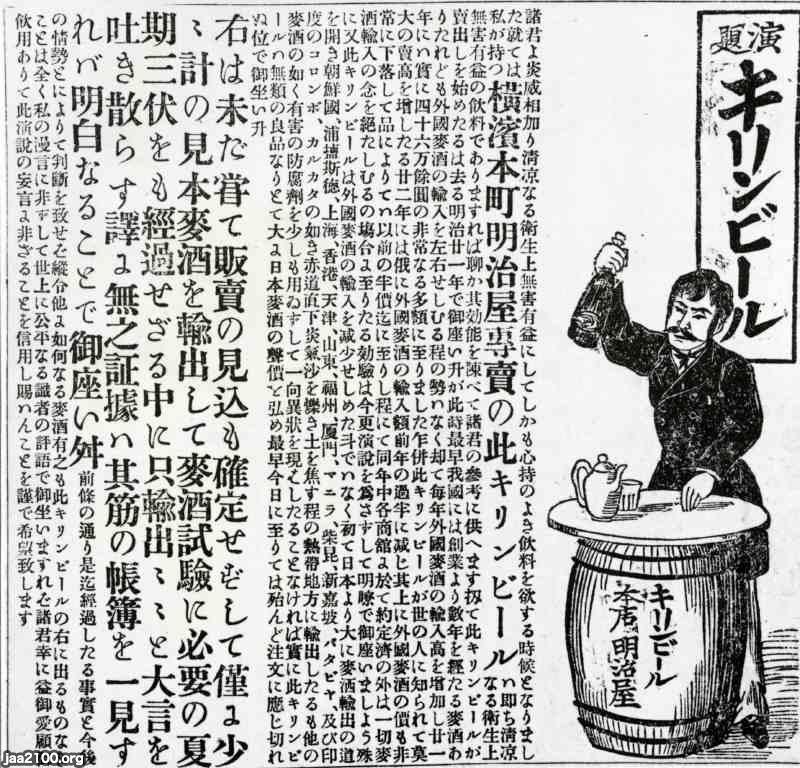 演題
キリンビール
キリンビール
本店 明治屋
諸君よ炎威相加り清凉なる衛生上無害有益にしてしかも心持のよき飲料を欲する時候となりまし
た就ては私が持つ横濱本町明治屋専賣の此キリンビールハ即ち清凉なる衛生上
無害有益の飲料でありますれば聊か其効能を陳べて諸君の參考に供へます扨て此キリンビールが
賣出しを始めたるは去る明治廿一年で御座い升が此時最早我國には創業より數年を經たる麥酒あ
りたれども外國麥酒の輸入を左右せしむる程の勢ハなく却て毎年外國麥酒の輸入高を増加し廿一
年にハ實に四十六万餘圓の非常なる多額に至りました乍併此キリンビールが世の人に知られて莫
大の賣高を増したる廿二年には俄に外國麥酒の輸入額前年の過半に減じ其上に外國麥酒の價も非
常に下落して品によりてハ以前の半價迄に至りし程にて同年中各商舘に於て約定濟の外は一切麥
酒輸入の念を絶たしむるの塲合に至りたる効驗は今更演説を爲さずして明瞭で御座いましよう殊
に又此キリンビールは外國麥酒の輸入を減少せしめた斗でハなく初て日本より大に麥酒輸出の道
を開き朝鮮國、浦塩斯德、上海、香港、天津、山東、福州、厦門、マニラ、柴昆、新嘉坡、バタビヤ、及び印
度のコロンボ、カルカタの如き赤道直下炎氣沙を爍き土を焦す程の熱帶地方に輸出したるも他の
麥酒の如く有害の防腐劑を少しも用ゐずして一向異狀を現したることなければ實に此キリンビ
ールハ無類の良品なりとて大に日本麥酒の聲價を弘め最早今日に至りては殆んど注文に應じ切れ
ぬ位で御坐い升
右は未だ甞て販賣の見込も確定せずして僅に少
々計の見本麥酒を輸出して麥酒試驗に必要の夏
期三伏をも經過せざる中に只輸出々々と大言を
吐き散らす譯に無之証據ハ其筋の帳簿を一見す
れバ明白なることで御座い舛前條の通り是迄經過したる事實と今後
の情勢とによりて判斷を致せば縱令他に如何なる麥酒有之も此キリンビールの右に出るものな
ことは全く私の漫言に非ずして世上に公平なる識者の評語で御坐いますれば諸君幸に益御愛顧
飲用ありて此演説の妄言に非ざることを信用し賜ハんことを謹で希望致します
jaa2100.org